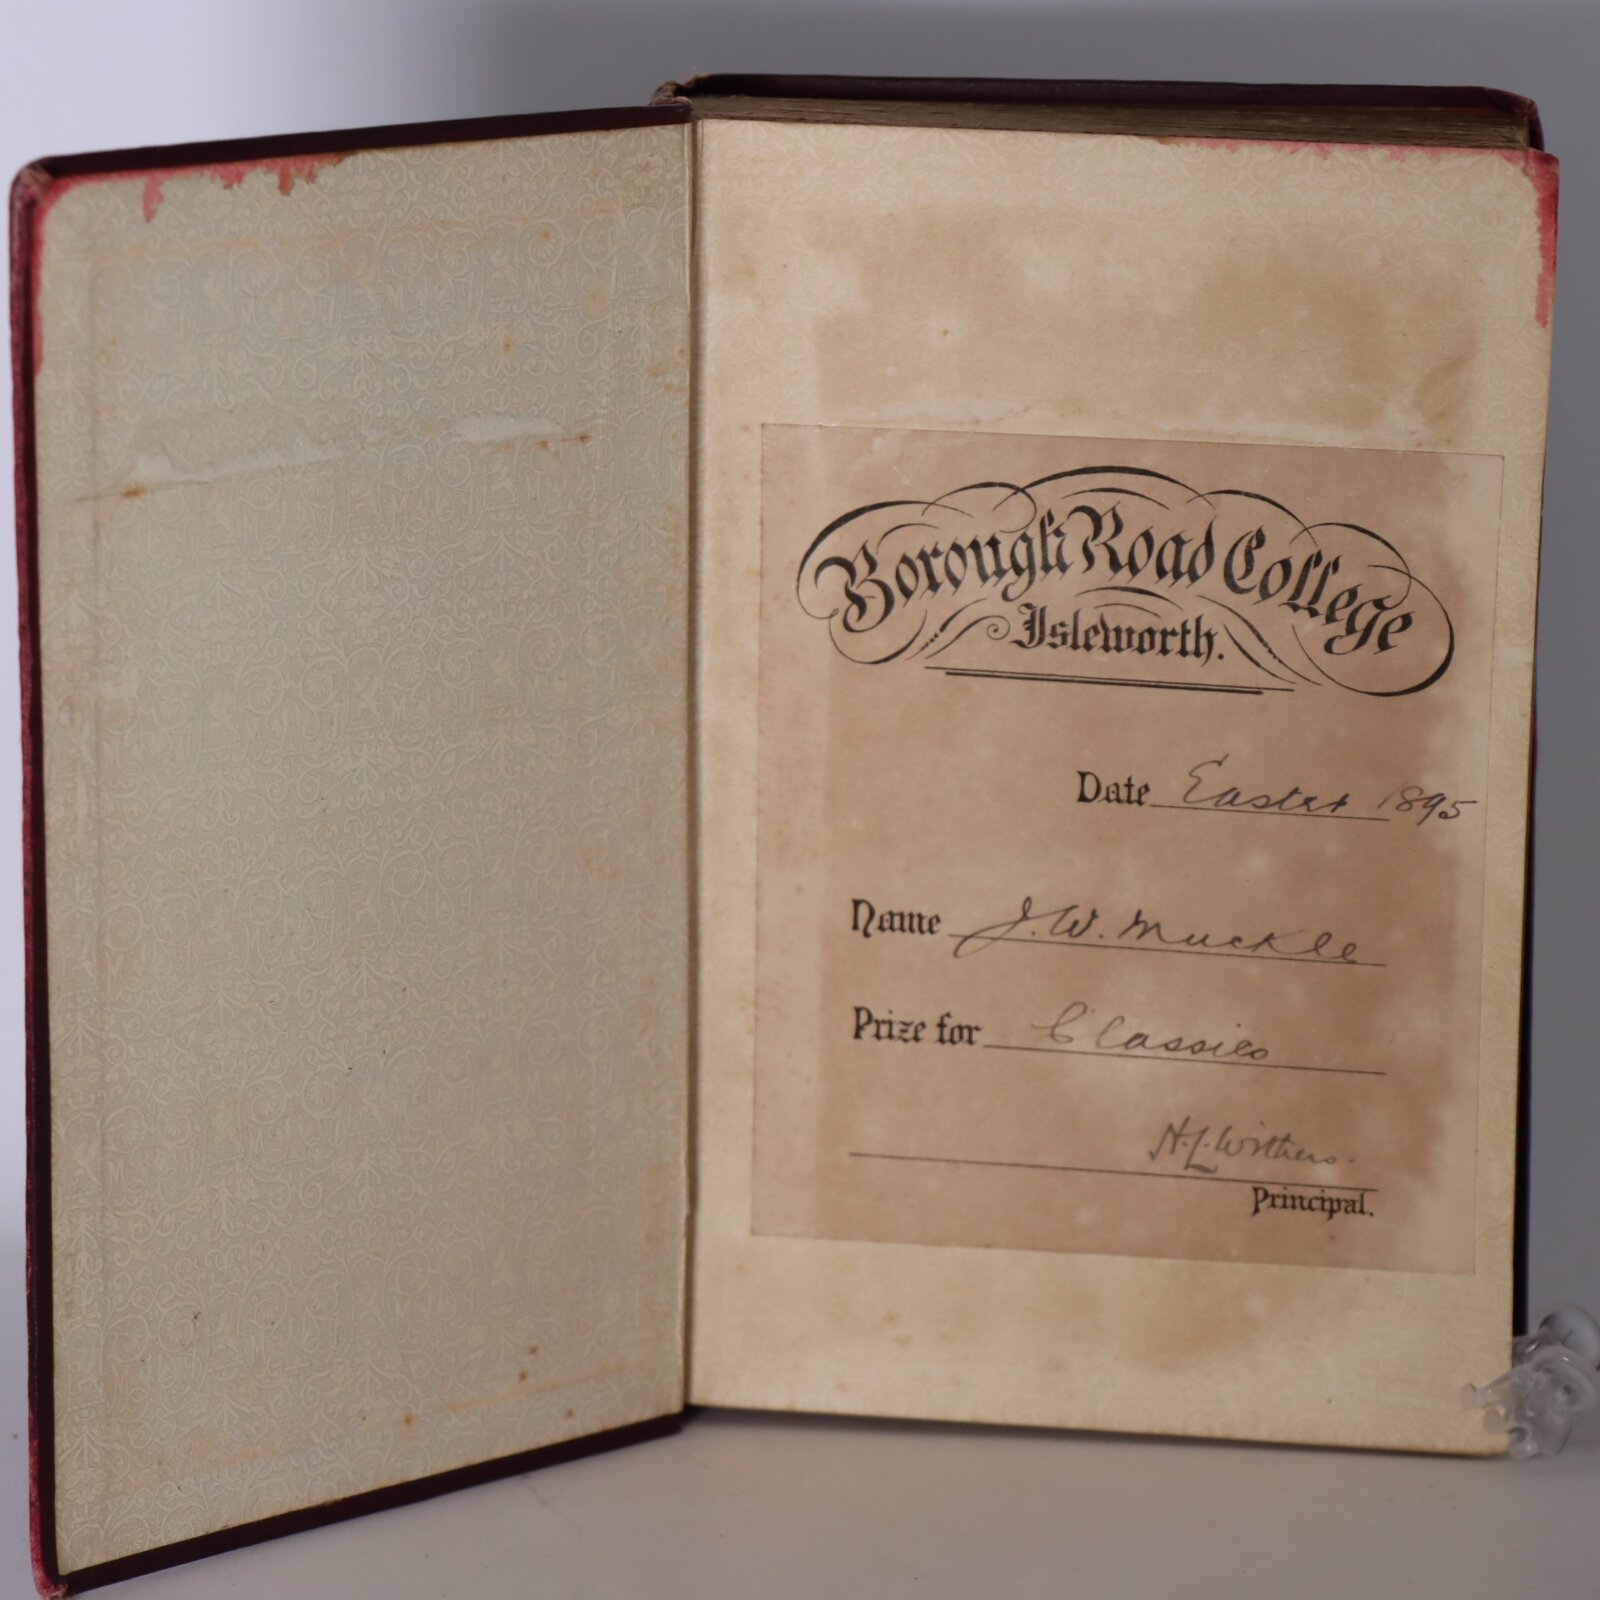 Borough Road College
Isleworth.
Date Easter 1895
Name J. W. Muckle
Prize for Classics
H. L. Withers.
Principal.